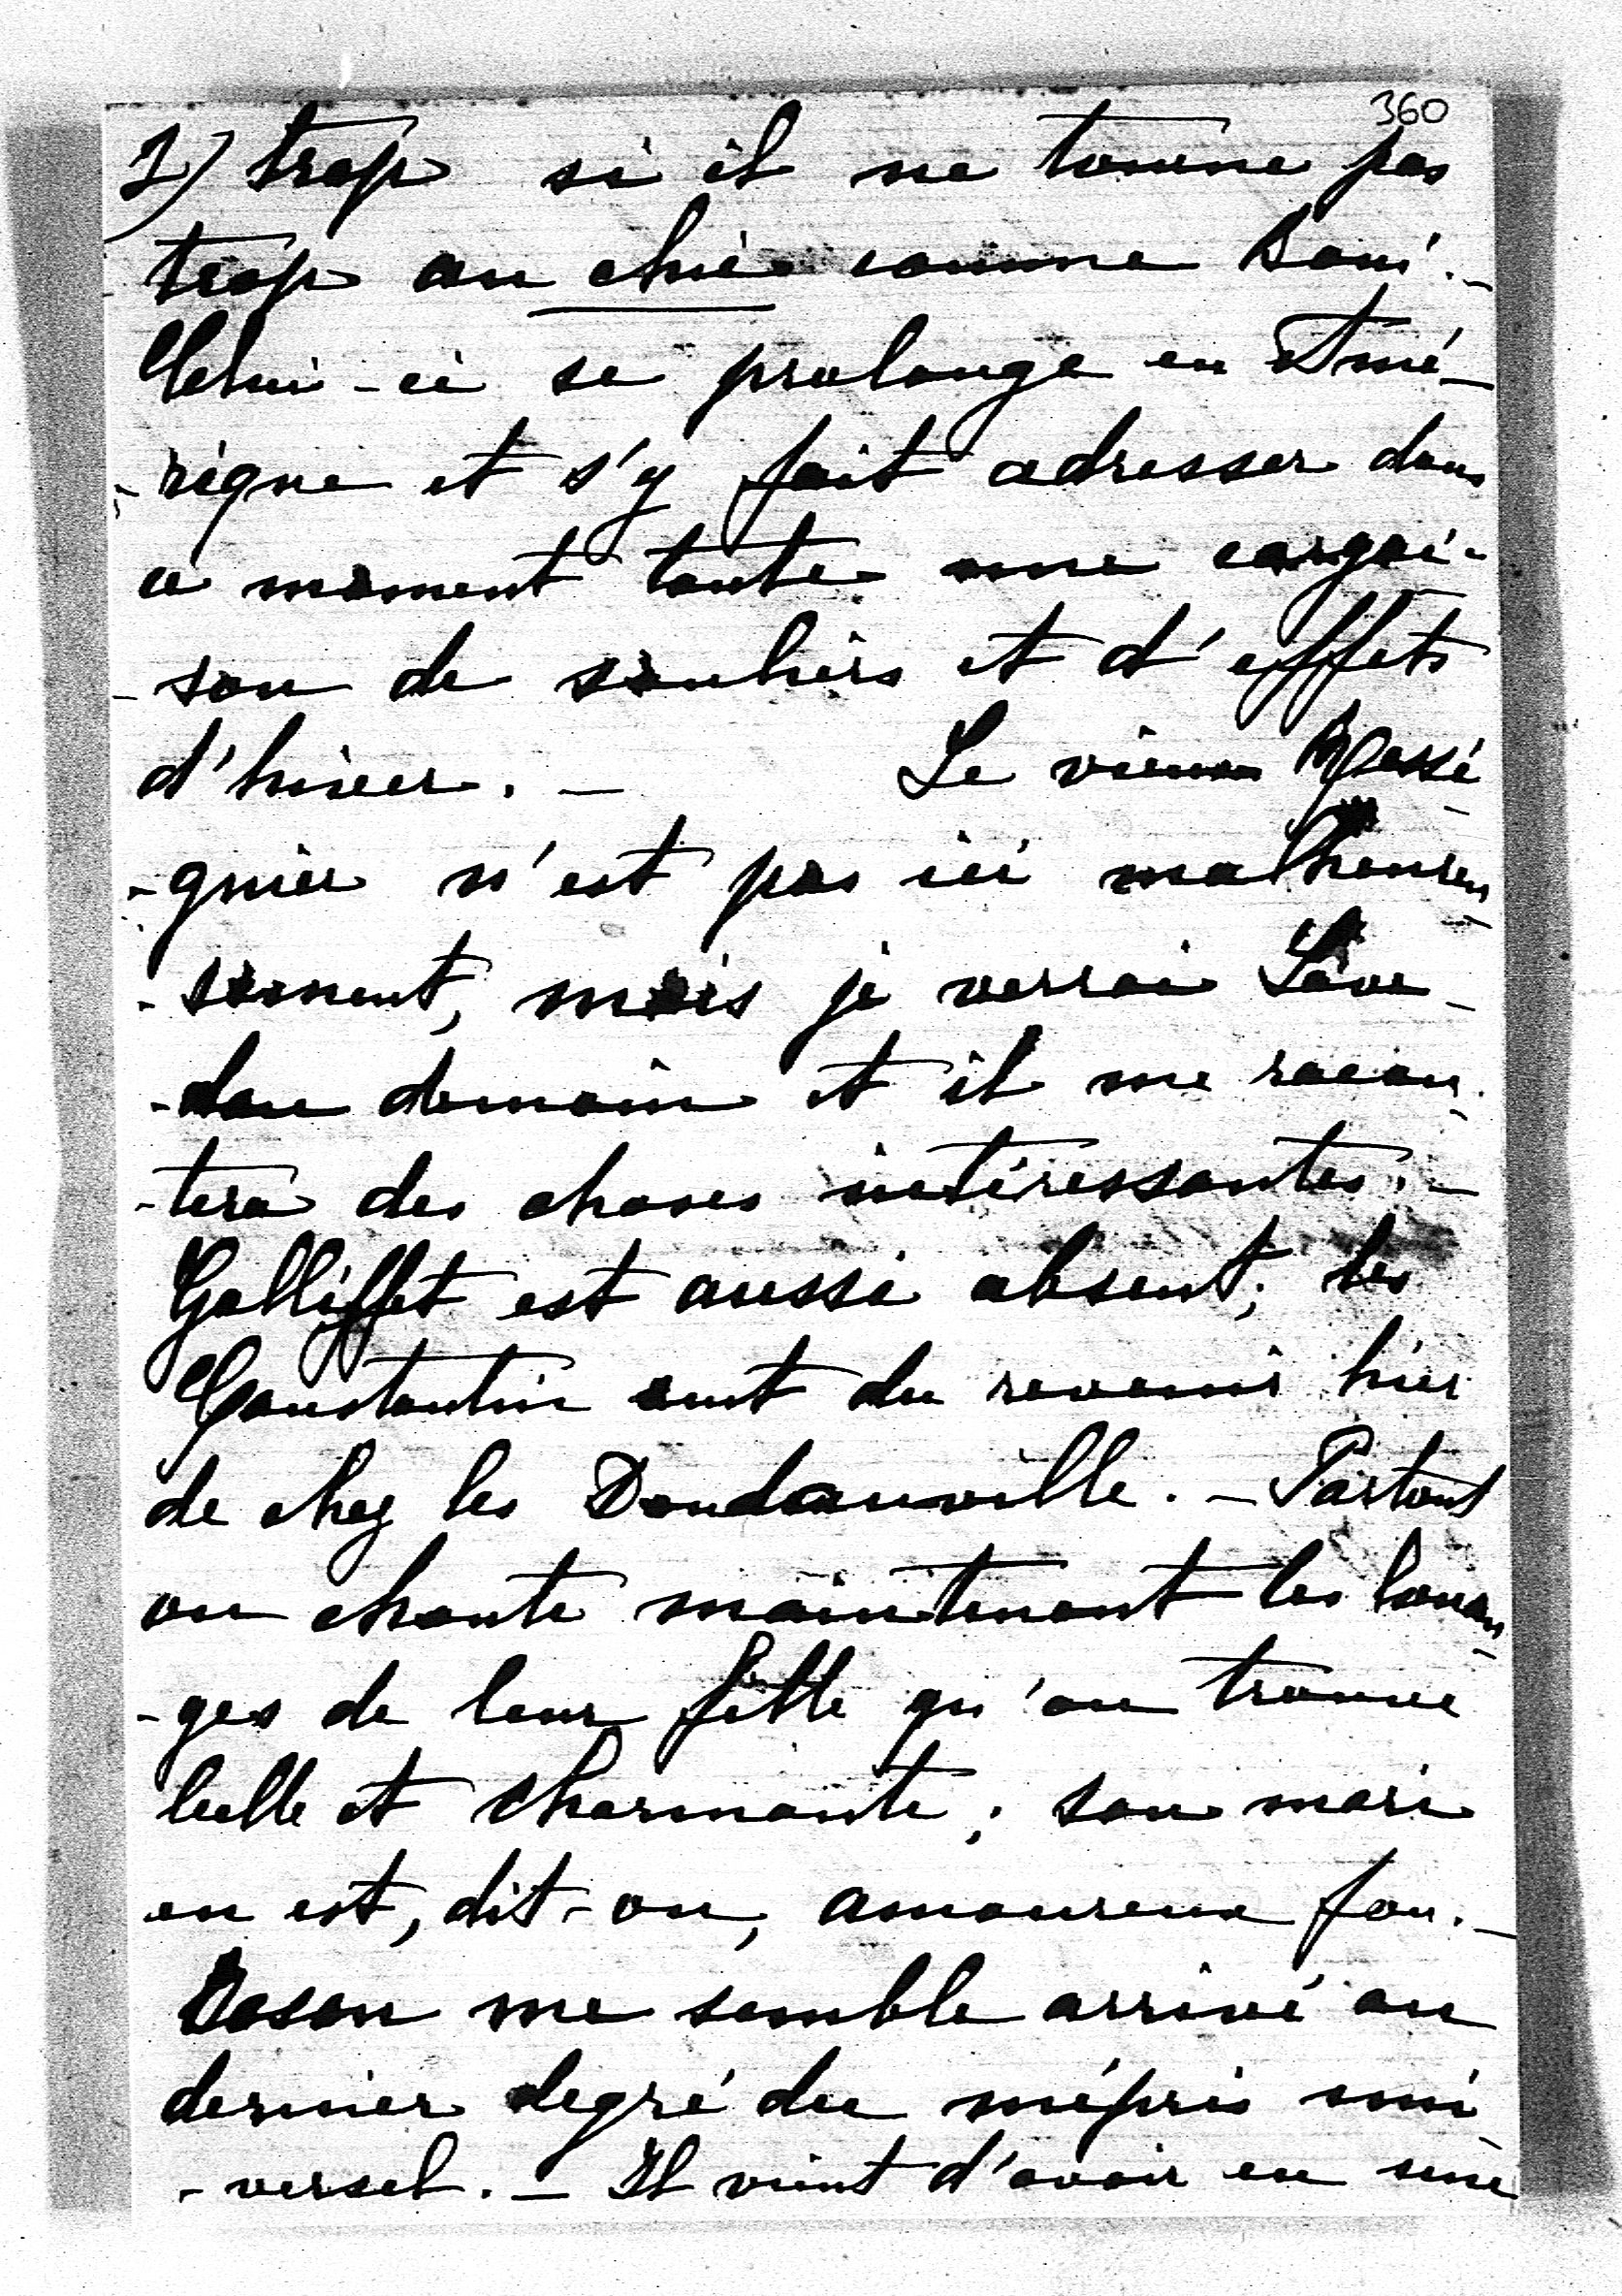 360
2) trop si il ne tourne pas
trop au chic comme Boni. -
Celui-ci se prolonge en Amé-
-rique et s'y fait adresser dans
ce moment toute une cargai-
-son de souliers et d'effets
d'hiver. - Le vieux
-gnier n'est pas ici malheureu-
-sement, mais je verrai Lave-
-dan demain et il me racon-
-tera des choses intéressantes. -
Galliffet est aussi absent; les
Constantin ont du revenir hier
de chez les Doudauville. - Partout
on chante maintenant les louan-
-ges de leur fille qu'on trouve
belle et charmante; son mari
en est, dit-on, amoureux fou. -
Boson me semble arrivé au
dernier degré du mépris uni-
-versel. - Il vient d'avoir eu une